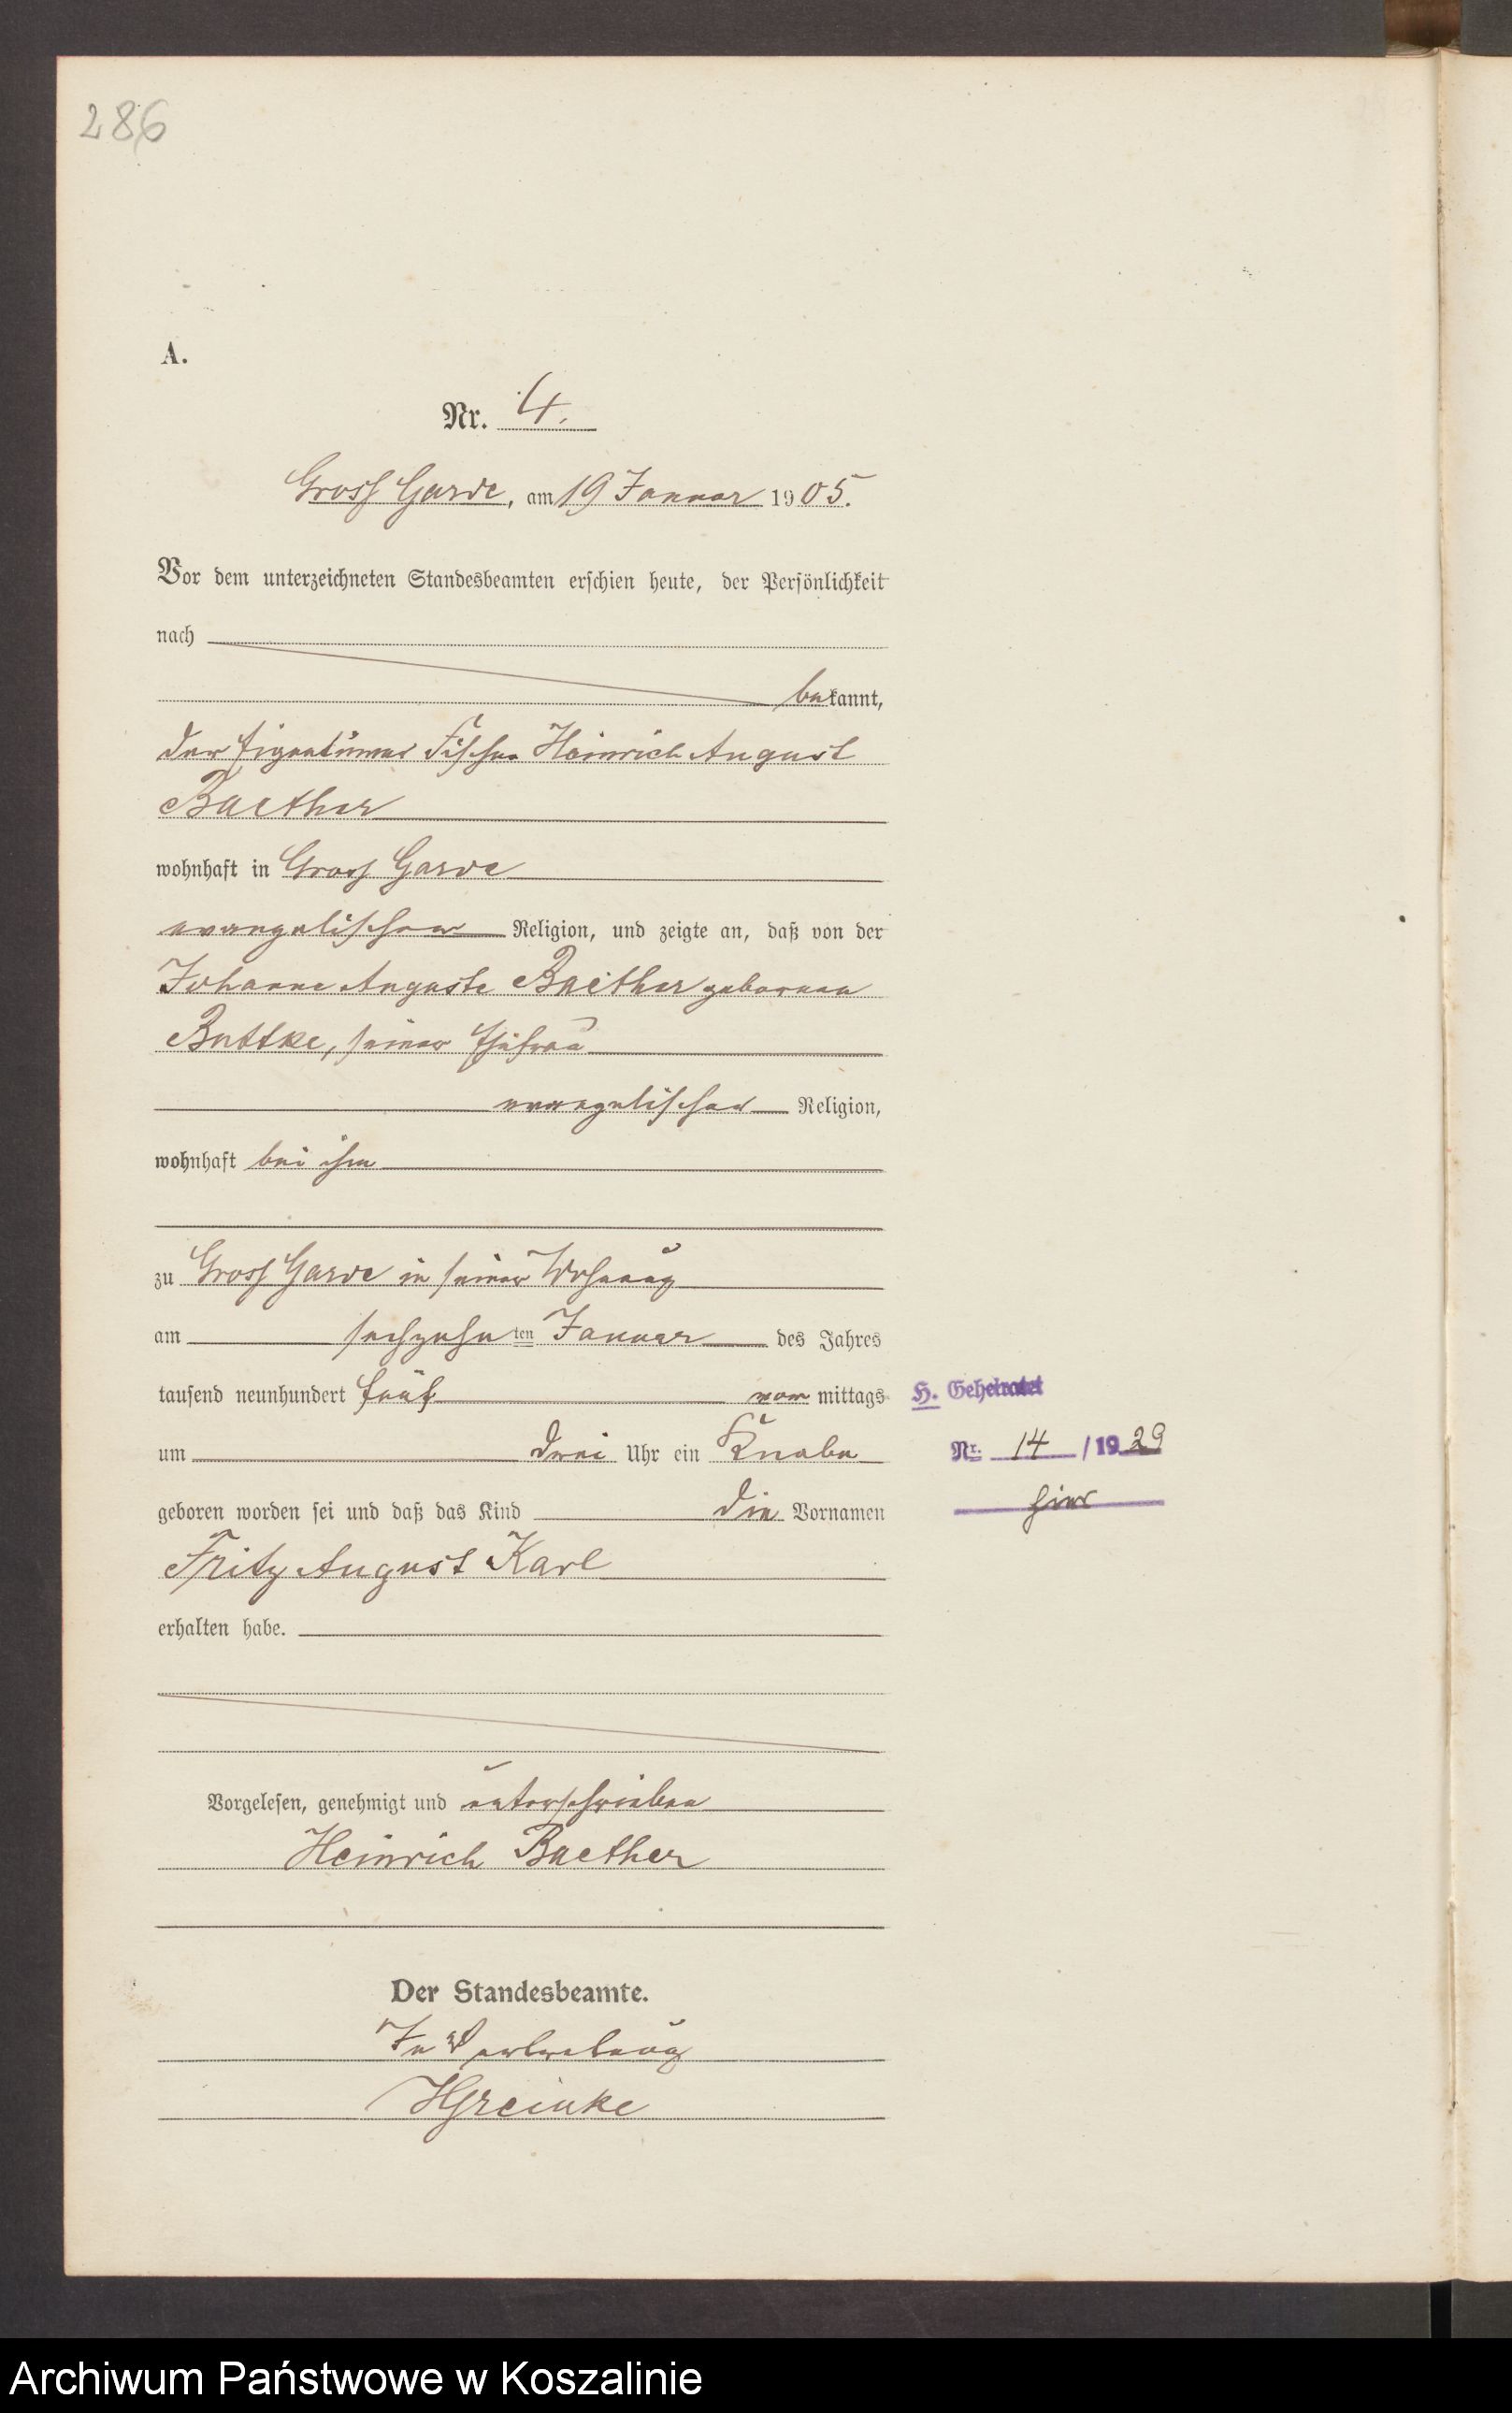 286
A.
Nr. 4.
Gross Garde, am 19 Januar 1905.
Vor dem unterzeichneten Standesbeamten erschien heute, der Persönlichkeit
nach
bekannt,
der Eigentümer Fischer Heinrich August
Baether
wohnhaft in Gross Garde
evangelischer Religion, und zeigte an, daß von der
Johanne Auguste Baether geborenen
Buttke, seiner Ehefrau
evangelischer Religion,
wohnhaft bei ihm
zu Gross Garde in seiner Wohnung
am sechzehnten Januar des Jahres
tausend neunhundert fünf vormittags
um drei Uhr ein Knabe
geboren worden sei und daß das Kind die Vornamen
Fritz August Karl
erhalten habe.
Vorgelesen, genehmigt und unterschrieben
Heinrich Baether
Der Standesbeamte.
In Vertretung
HGreinke
H. Geheiratet
Nr. 14 / 1929
hier
Archiwum Państwowe w Koszalinie